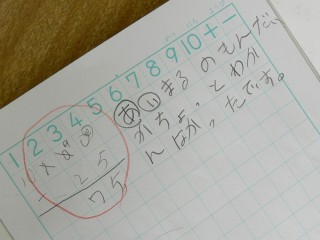 1 2 3 4 5 6 7 8 9 10 + −
あ い まるのもんだい
がちょっとわか
んなかったです。
2 5
7 5